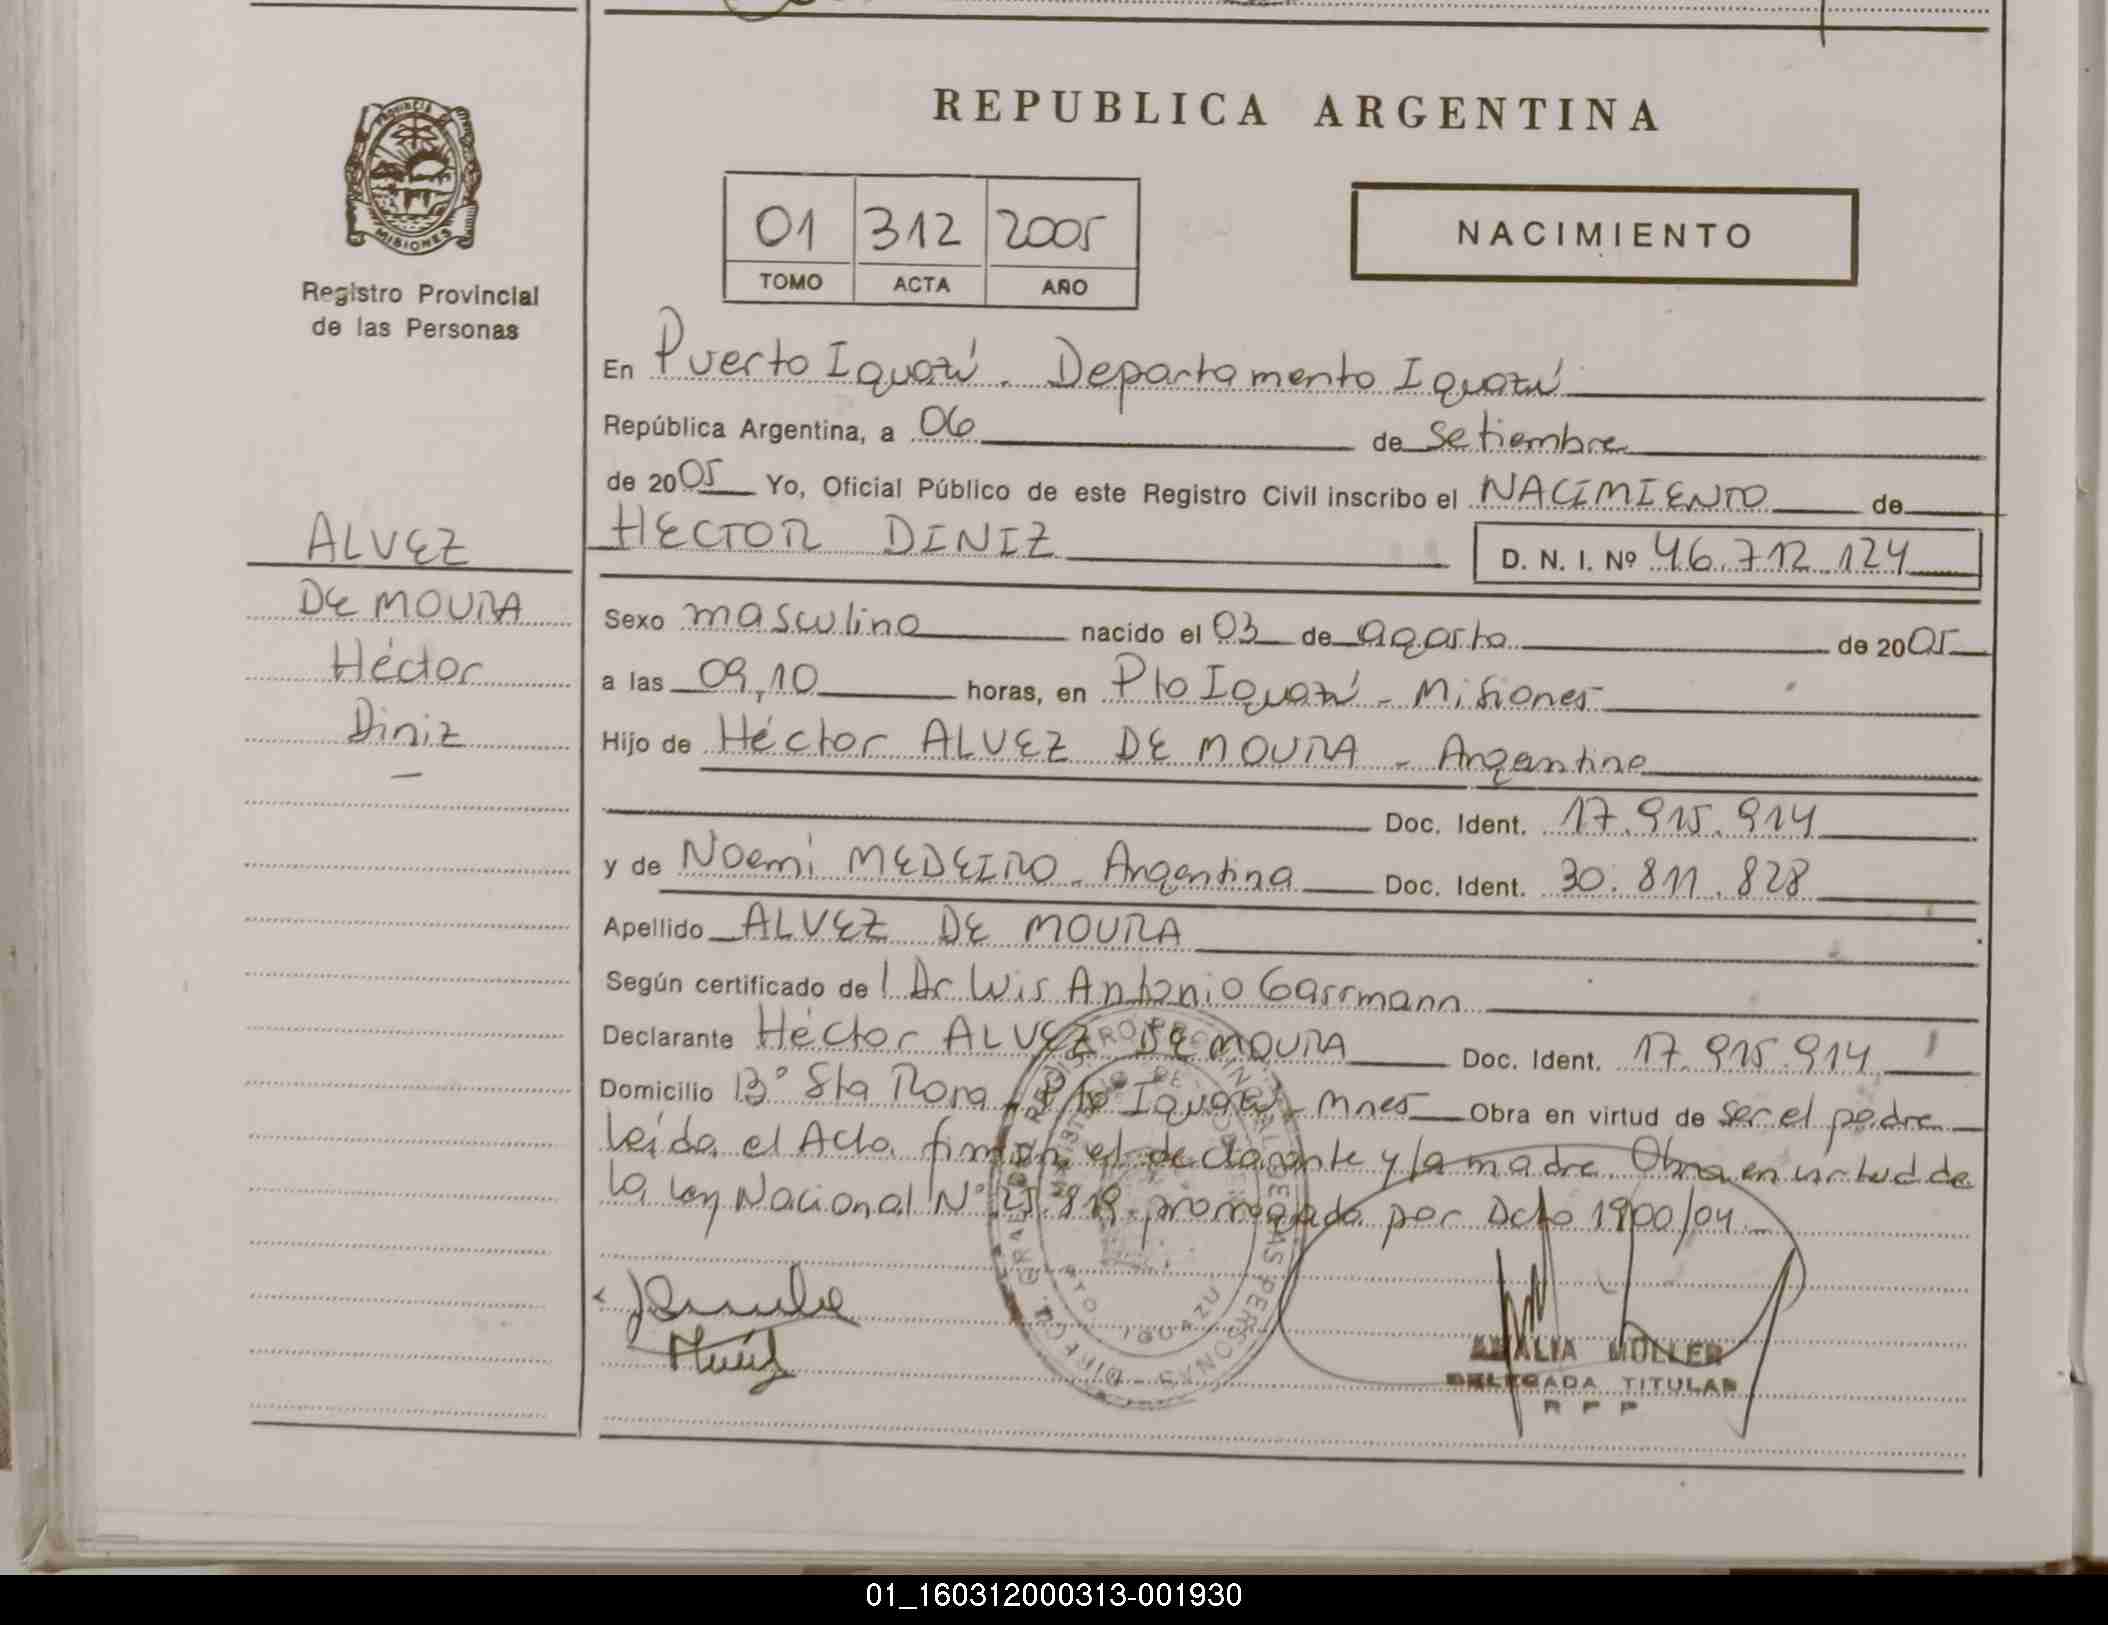 REPUBLICA ARGENTINA
PROVINCIA
MISIONES
Registro Provincial
de las Personas
01 312 2005
TOMO ACTA AÑO
NACIMIENTO
En Puerto Iguazú - Departamento Iguazú
República Argentina, a 06 de Setiembre
de 2005 Yo, Oficial Público de este Registro Civil inscribo el NACIMIENTO de
HECTOR DINIZ D. N. I. Nº 46.712.124
ALVEZ
DE MOURA
Héctor
Diniz
Sexo masculino nacido el 03 de agosto de 2005
a las 09,10 horas, en Pto Iguazú - Misiones
Hijo de Héctor ALVEZ DE MOURA - Argentino
Doc. Ident. 17.915.914
y de Noemi MEDEIRO - Argentina Doc. Ident. 30.811.828
Apellido ALVEZ DE MOURA
Según certificado de l Dr Luis Antonio Garrmann
Declarante Héctor ALVEZ DE MOURA Doc. Ident. 17.915.914
Domicilio Bº Sta Rosa - Pto Iguazú - Mnes Obra en virtud de ser el padre
Leída el Acta firman el declarante y la madre. Obra en virtud de
la Ley Nacional Nº 25.819 prorrogada por Dcto 1900/04 -
PTO IGUAZU
AMALIA MULLER
DELEGADA TITULAR
R P P
01_160312000313-001930